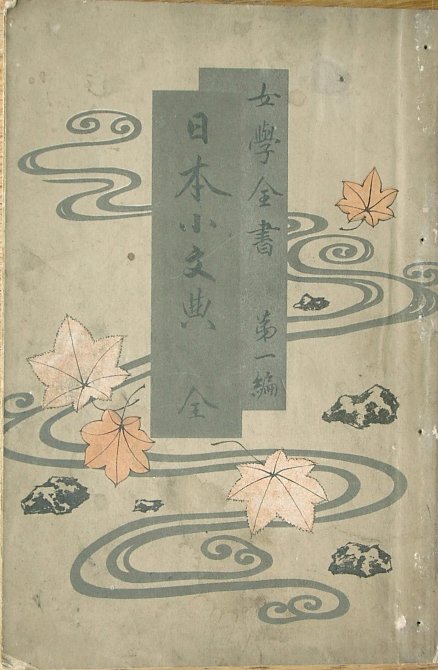 女學全書 第一編
日本小文典 全